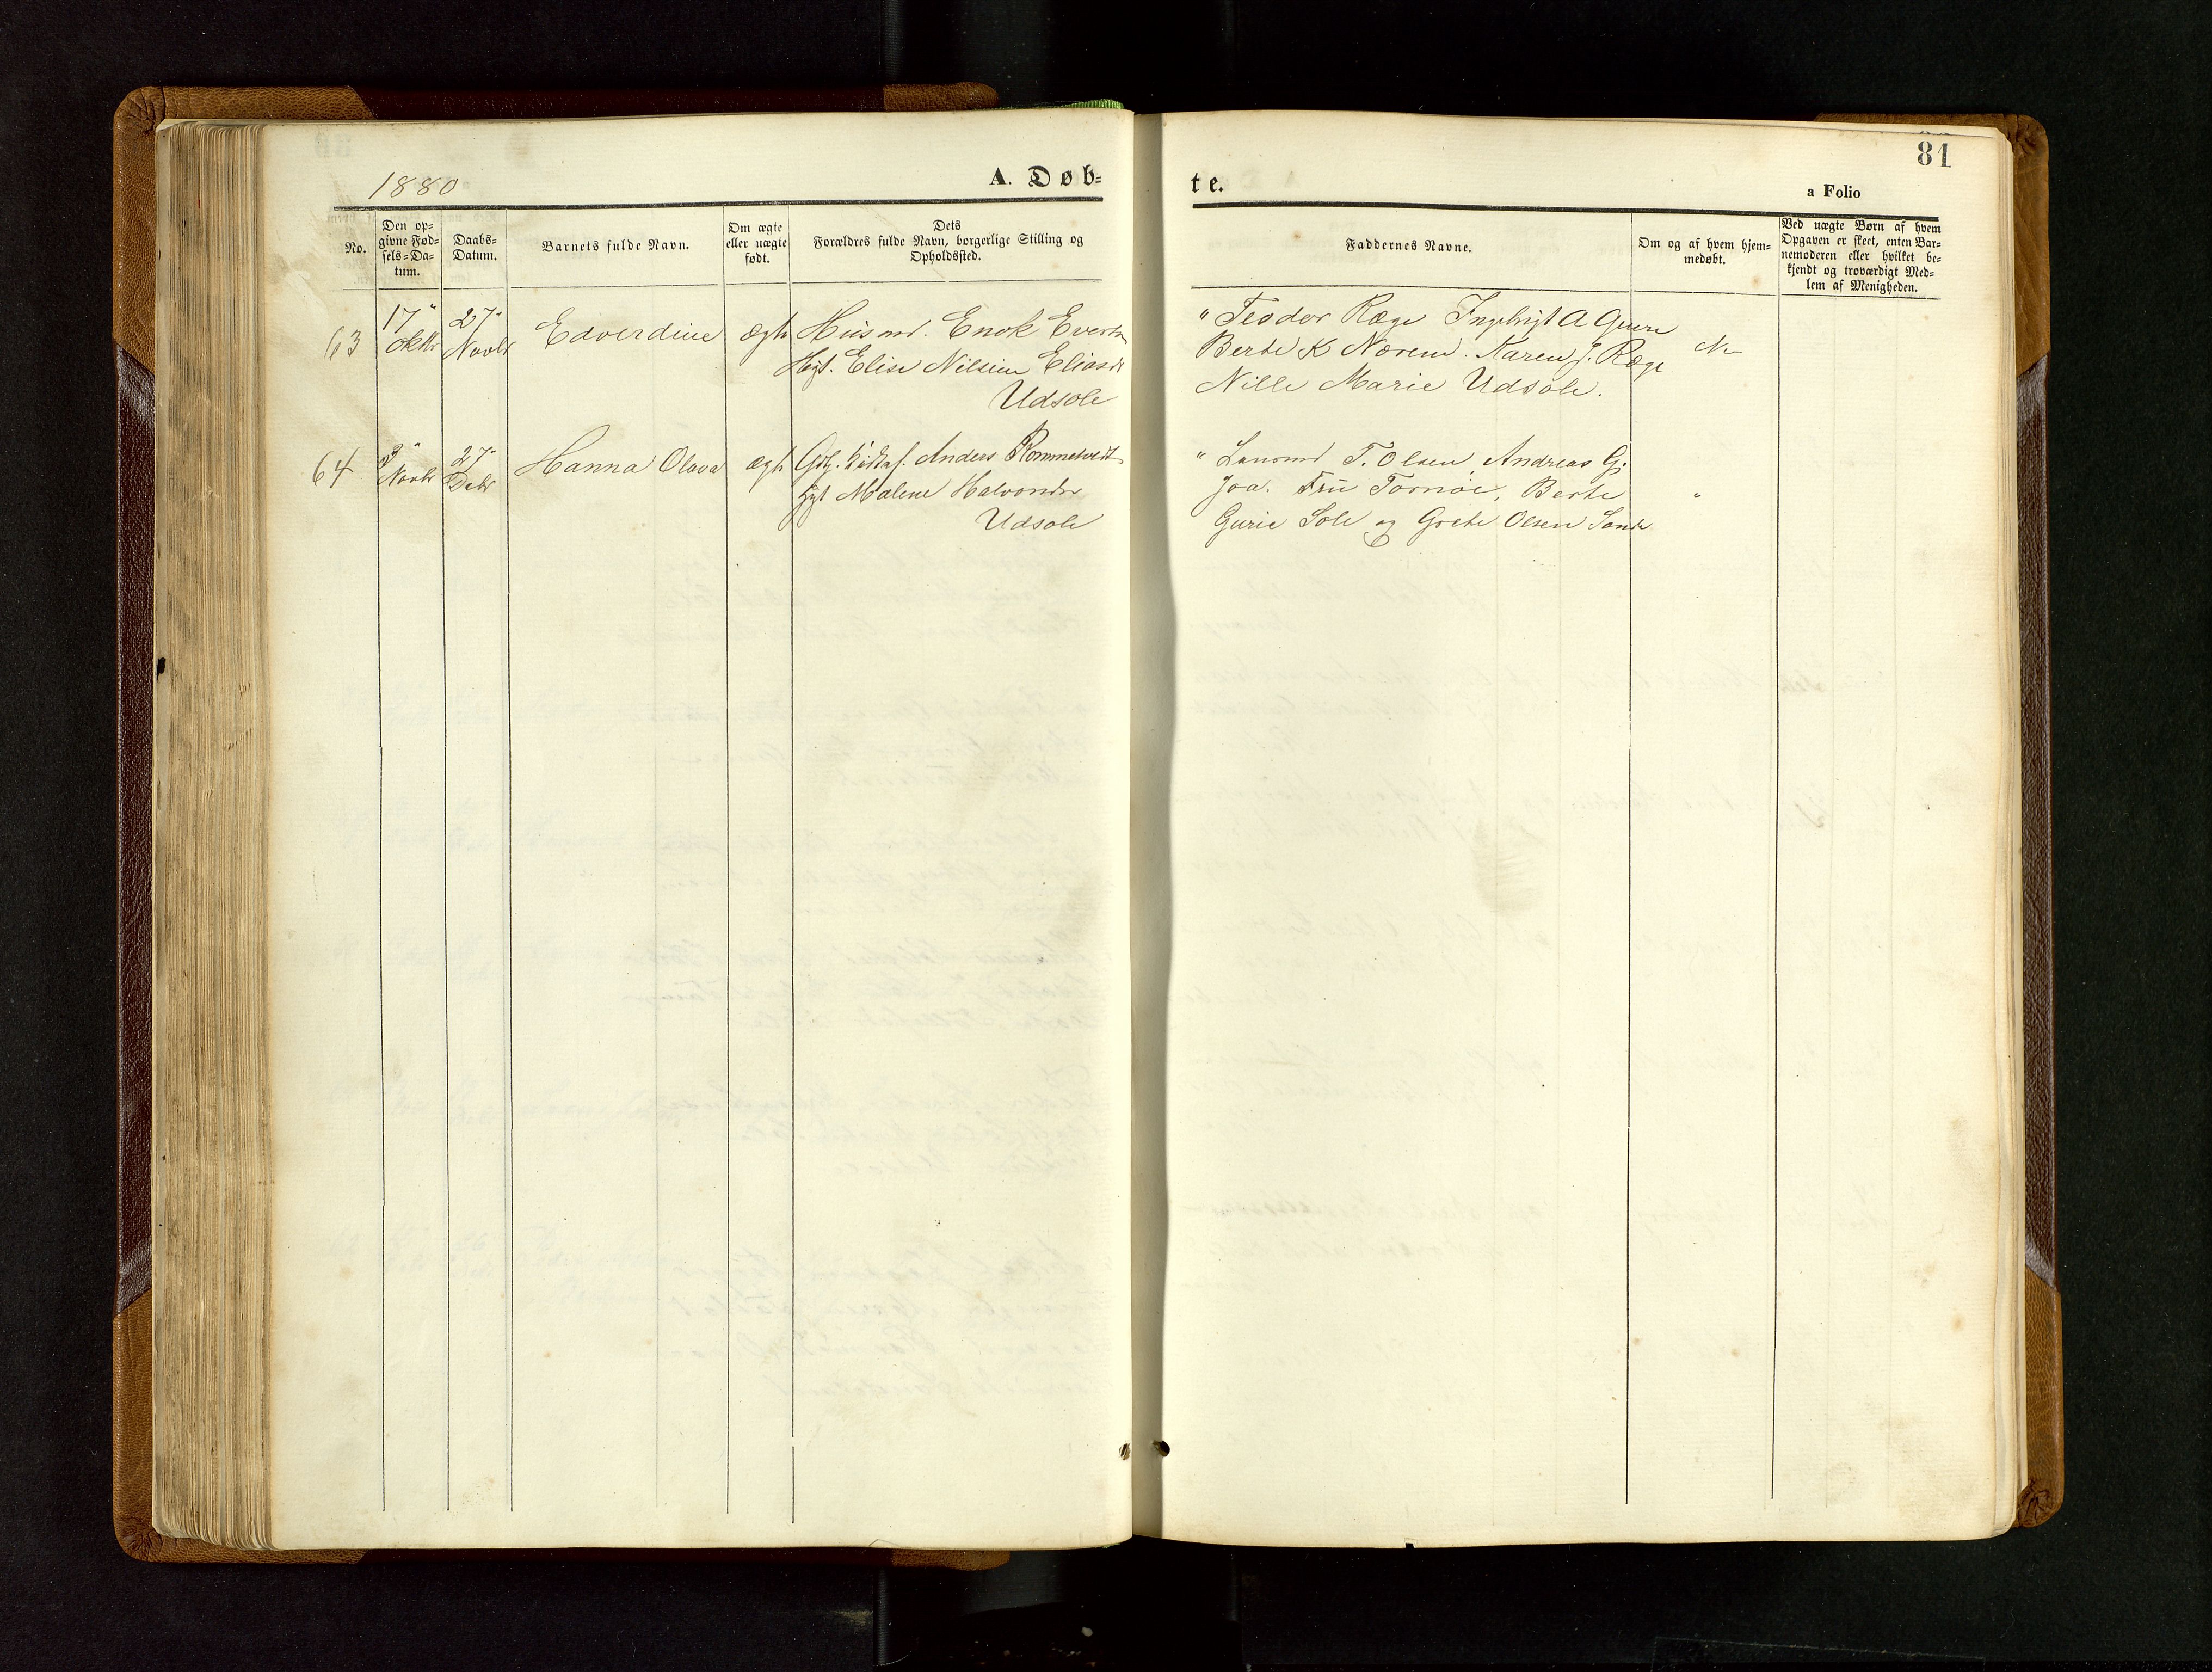 81
1880
A. Døb-
te.
a Folio
No.
Den op-
givne Fød-
sels-Da-
tum.
Daabs-
Datum.
Barnets fulde Navn.
Om ægte
eller uægte
født.
Dets
Forældres fulde Navn, borgerlige Stilling og
Opholdssted.
Faddernes Navne.
Om og af hvem hjem-
medøbt.
Ved uægte Børn af hvem
Opgaven er skeet, enten Bar-
nemoderen eller hvilket be-
kjendt og troværdigt Med-
lem af Menigheden.
63
17"
Oktbr
27"
Novbr
Edverdine
ægte
Husmd. Enok Everts
Hgt. Elise Nilsine Eliasdr
Udsole
" Teodor Ræge Ingebrigt A
Berte K Nærem. Karen J. Ræge
Nille Marie Udsole.
64
3"
Novbr
27"
Debr
Hanna Olava
ægte
Anders Rommetvedt
Hgt Malene Halvorsdr
Udsole
" Lensmd T. Olsen, Andreas G.
Joa. Fru Tornøe, Berte
Gurie Sole og Grete Olsen Sande
"